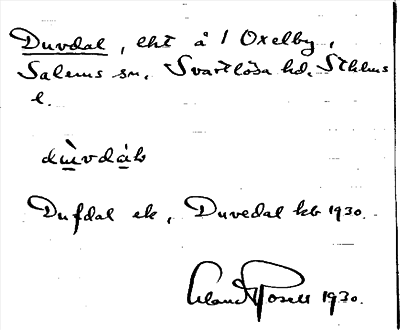 Duvdal, lht å 1 Oxelby,
Salems sn. Svartlösa hd. Sthlms
l.
Dufdal ek, Duvedal kb 1930.
Erland Rosell 1930.